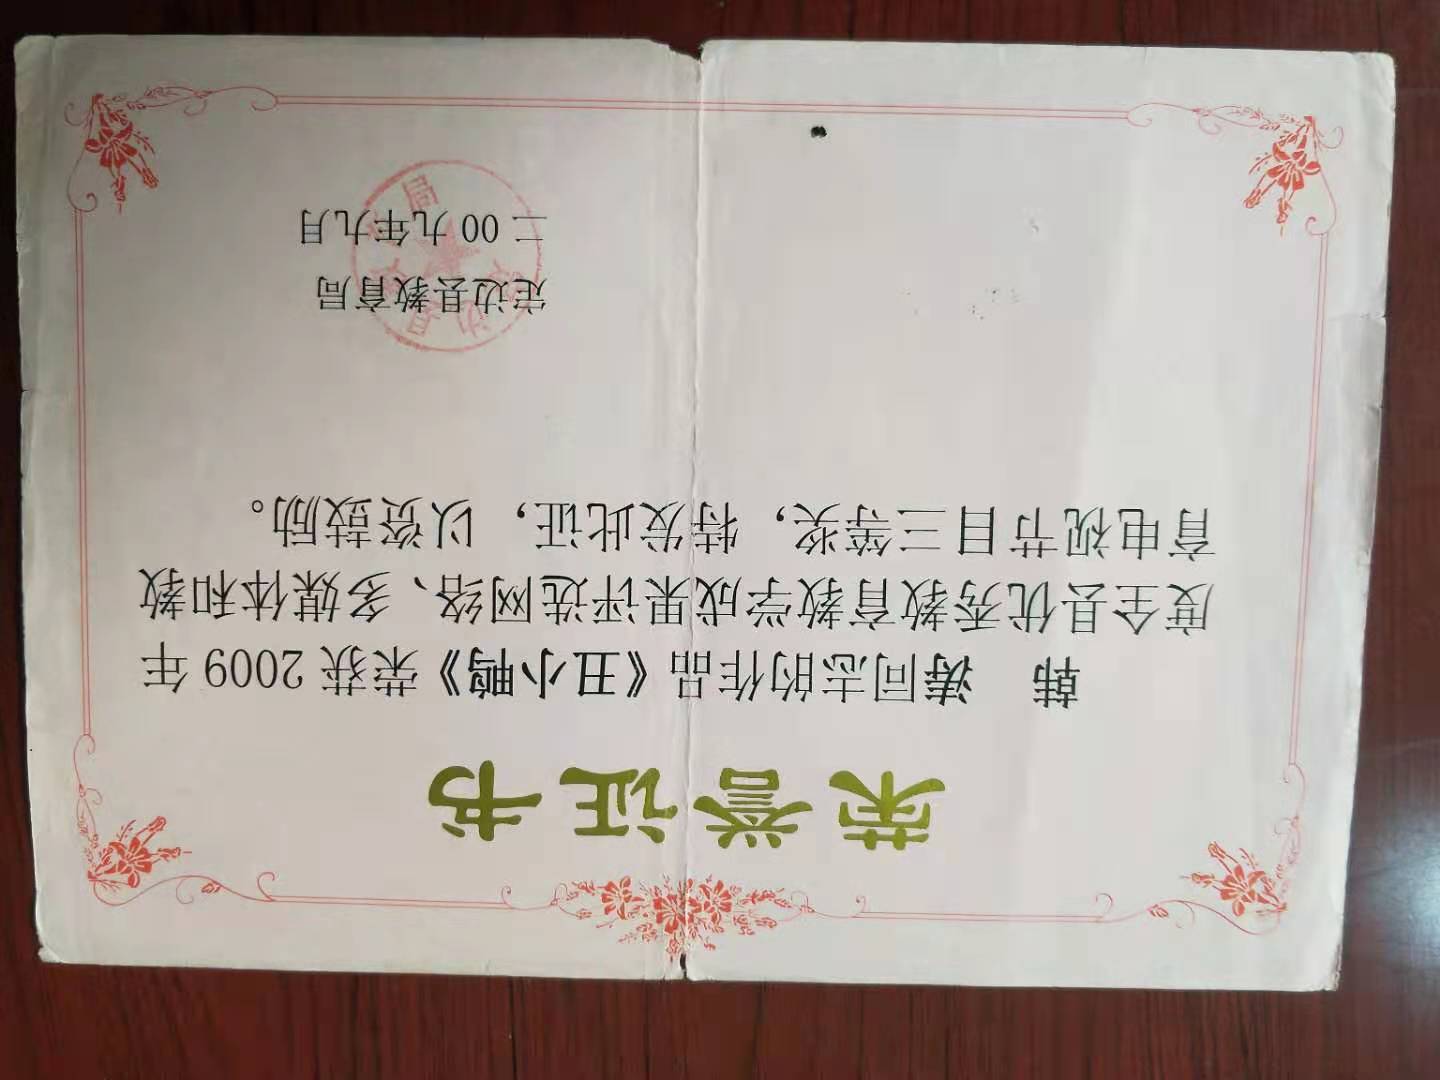 荣誉证书
韩 涛同志的作品《丑小鸭》荣获 2009 年
度全县优秀教育教学成果评选网络、多媒体和教
育电视节目三等奖，特发此证，以资鼓励。
定边县教育局
二00九年九月